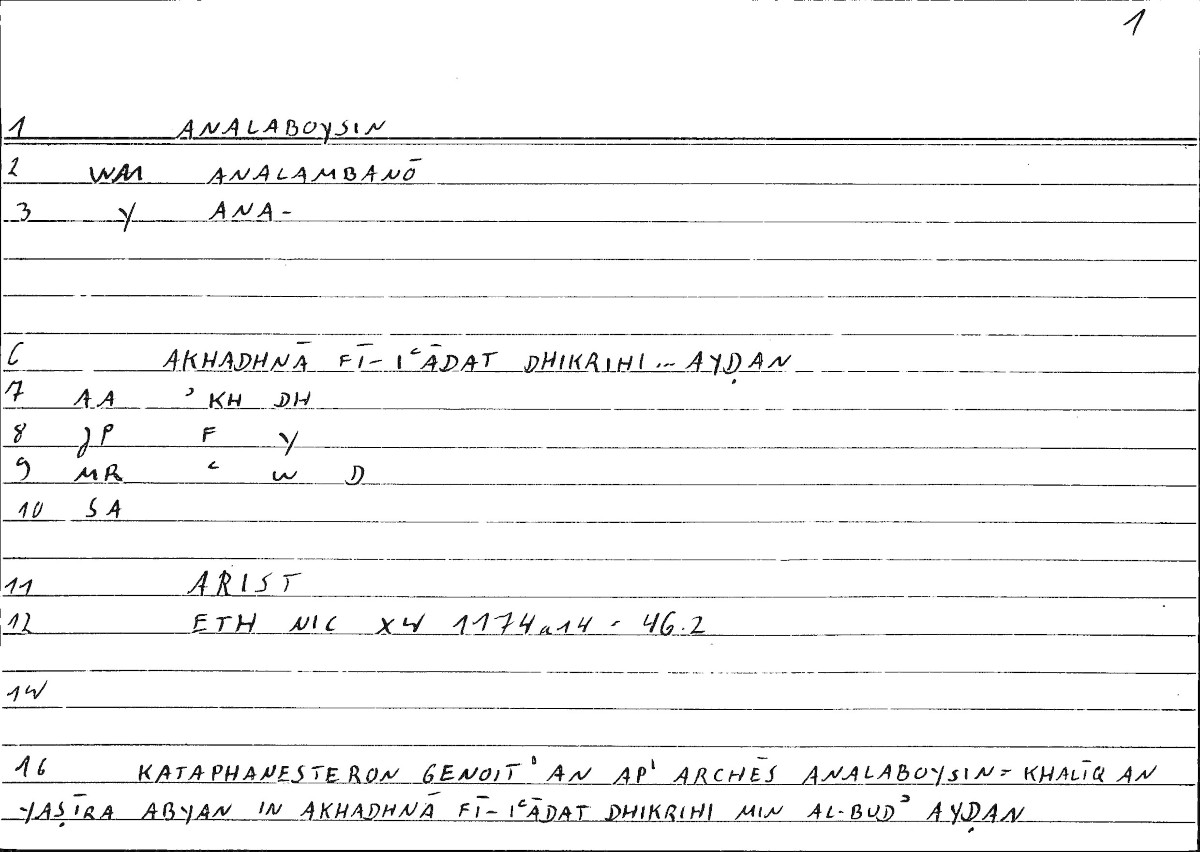 1
1 ANALABOYSIN
2 WM ANALAMBANŌ
3 Y ANA-
6 AKHADHNĀ FĪ-IʿĀDAT DHIKRIHI... AYḌAN
7 AA ʾ KH DH
8 JP F Y
9 MR ʿ W D
10 SA
11 ARIST
12 ETH NIC X4 1174a14 - 46.2
14
16 KATAPHANESTERON GENOIT' AN AP' ARCHĒS ANALABOYSIN = KHALĪQ AN
YAṢĪRA ABYAN IN AKHADHNĀ FĪ-IʿĀDAT DHIKRIHI MIN AL-BUDʾ AYḌAN